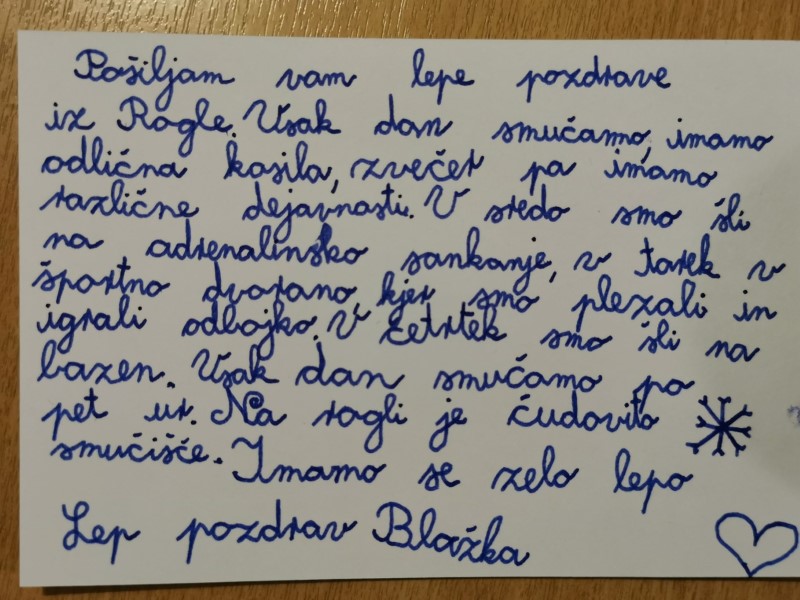 Pošiljam vam lepe pozdrave
iz Rogle. Vsak dan smučamo, imamo
odlična kosila, zvečer pa imamo
različne dejavnosti. V sredo smo šli
na adrenalinsko sankanje, v torek v
športno dvorano, kjer smo plezali in
igrali odbojko. V četrtek smo šli na
bazen. Vsak dan smučamo po
pet ur. Na rogli je čudovito
smučišče. Imamo se zelo lepo
Lep pozdrav Blažka